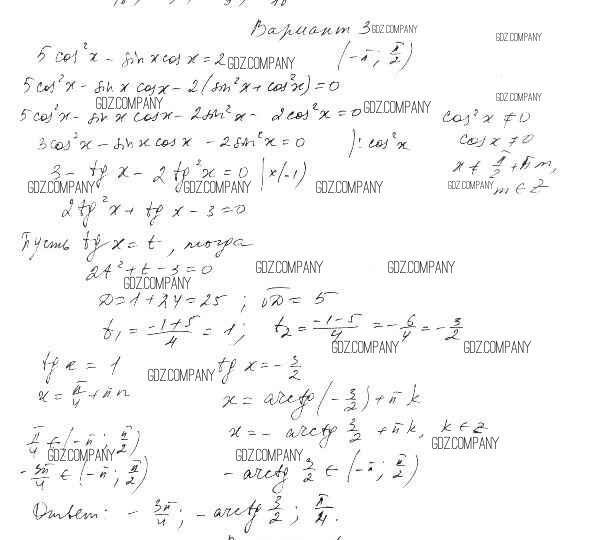 Вариант 3 GDZ.COMPANY
GDZ.COMPANY
5 cos²x - sin x cos x = 2 GDZ.COMPANY (-π; π/2)
5 cos²x - sin x cos x - 2(sin²x + cos²x) = 0
GDZ.COMPANY GDZ.COMPANY
5 cos²x - sin x cos x - 2 sin²x - 2cos²x = 0 GDZ.COMPANY cos²x ≠ 0
3cos²x - sin x cos x - 2 sin²x = 0 | : cos²x cos x ≠ 0
3 - tg x - 2 tg²x = 0 | x(-1) x ≠ π/2 + πm,
GDZ.COMPANY GDZ.COMPANY GDZ.COMPANY GDZ.COMPANY m ∈ Z
2tg²x + tg x - 3 = 0
Пусть tg x = t, тогда
2t² + t - 3 = 0 GDZ.COMPANY GDZ.COMPANY
GDZ.COMPANY
D = 1 + 24 = 25 ; √D = 5
t₁ = (-1+5)/4 = 1 ; t₂ = (-1-5)/4 = -6/4 = -3/2
GDZ.COMPANY GDZ.COMPANY
tg x = 1 GDZ.COMPANY tg x = -3/2
x = π/4 + πn x = arctg(-3/2) + πk
x = - arctg 3/2 + πk, k ∈ Z
π/4 ∈ (-π; π/2) GDZ.COMPANY
GDZ.COMPANY GDZ.COMPANY
-3π/4 ∈ (-π; π/2) - arctg 3/2 ∈ (-π; π/2)
Ответ: - 3π/4; - arctg 3/2; π/4.